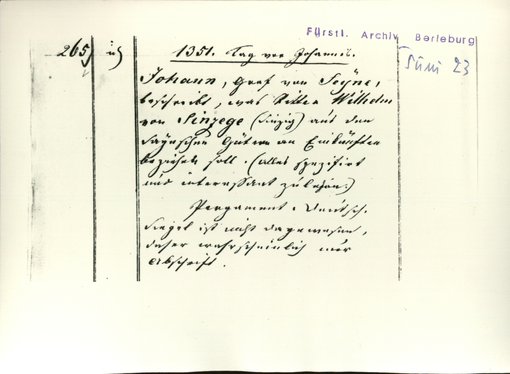 Fürstl. Archiv Berleburg
265, 1351. Tag vor Johannis.
Juni 23
Johann, Graf von Seyne,
beschreibt, was Ritter Wilhelm
von Sinzege (Sinzig) aus den
Sayn'schen Gütern an Einkünften
beziehen soll. (Alles spezifirt
und interessant zu lesen.)
Pergament. Deutsch.
Siegel ist nicht dagewesen,
daher wahrscheinlich nur
Abschrift.